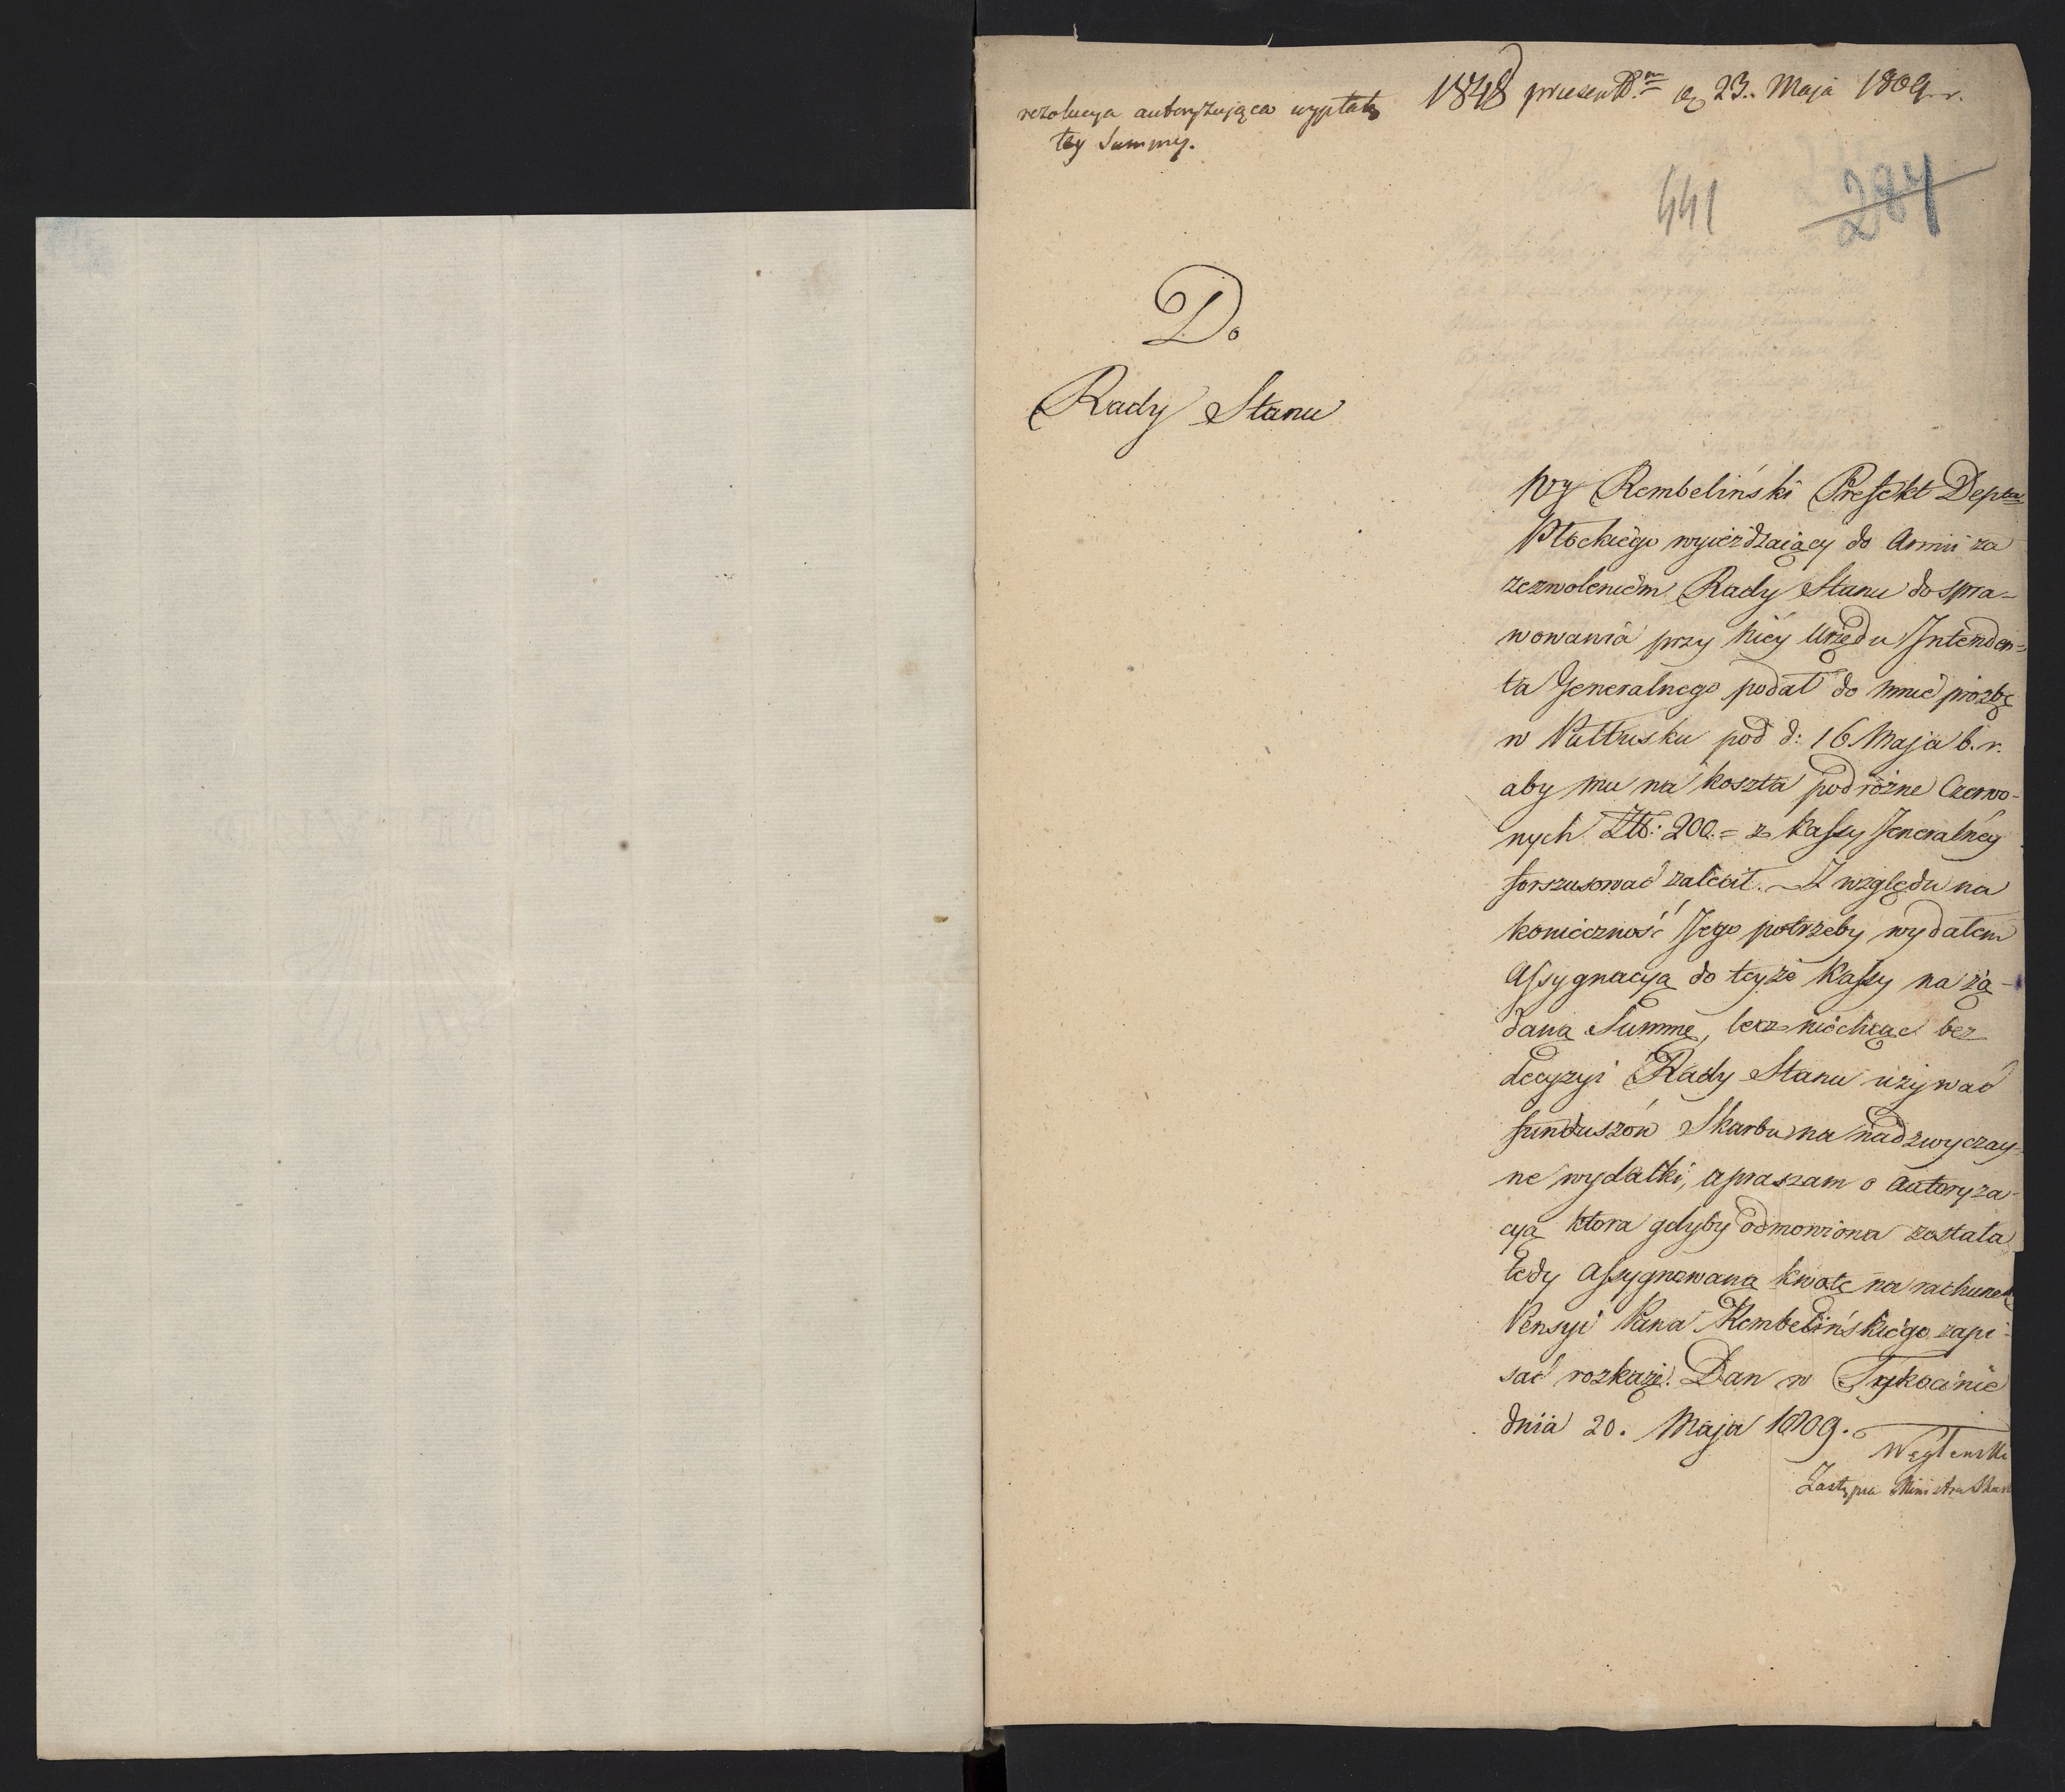 rezolucya autoryzująca wypłatę
tey Summy.
1848 praesent. d. 23. Maja 1809 r.
441
284
Do
Rady Stanu
Rembeliński Prefekt Depta
Płockiego wyieżdżaiący do Armii za
zezwoleniem Rady Stanu do spra-
wowania przy niéy Urzędu Intenden=
ta Generalnego podał do mnie prozbę
w Pułtusku pod d: 16 Maja b. r.
aby mu na koszta podróżne Czerwo-
nych Zł: 200.= z Kassy Jeneralnéy
forszusować zalécił. Z względu na
konieczność Jego potrzeby wydałem
Assygnacyą do teyże Kassy na żą-
daną Summę, lecz niechcąc bez
decyzyi Rady Stanu używać
funduszów Skarbu na nadzwyczay-
ne wydatki, upraszam o Autoryza-
cyą która gdyby odmowiona została
tedy Assygnowaną kwotę na rachunek
Pensyi Pana Rembelińskiego zapi-
sać rozkażę. Dan w Tykocinie
dnia 20. Maja 1809.
Węgleński
Zastępca Ministra Skar